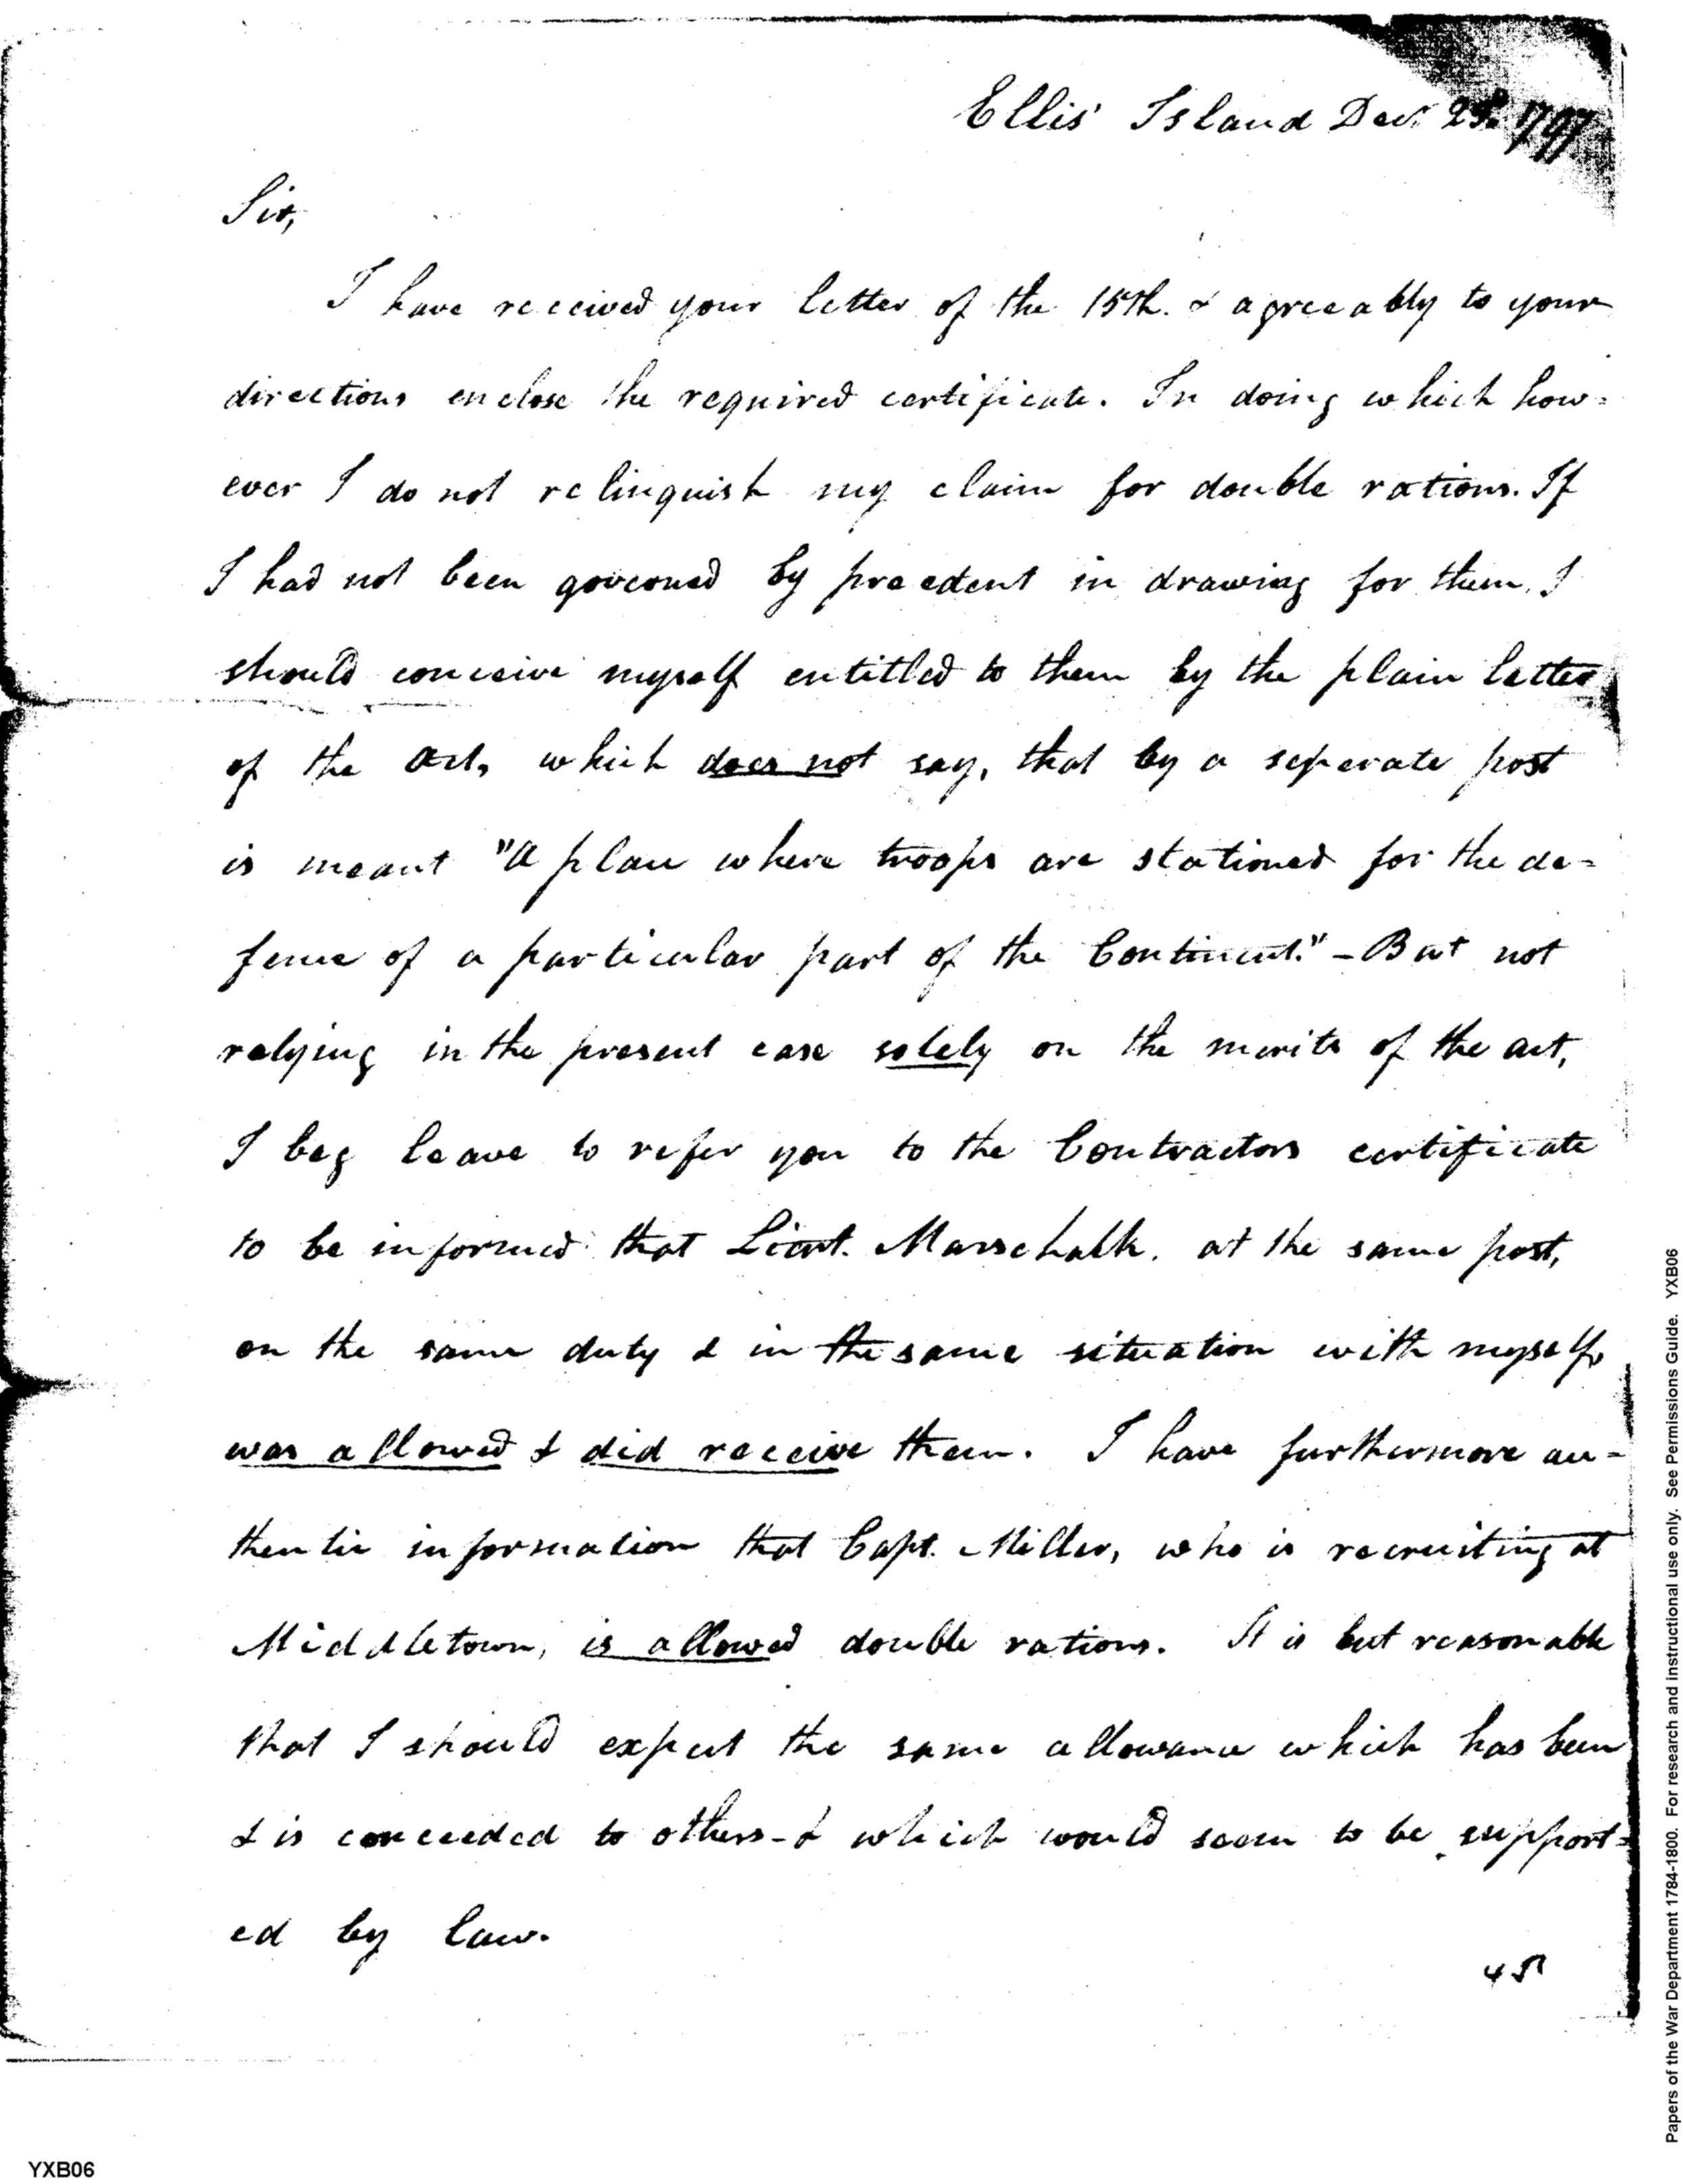 Ellis' Island Decr. 1797
Sir,
I have received your letter of the 15th. & agreeably to your
directions enclose the required certificate. In doing which how=
ever I do not relinquish my claim for double rations. If
I had not been governed by precedent in drawing for them, I
should conceive myself entitled to them by the plain letter
of the Act, which does not say, that by a seperate post
is meant "a place where troops are stationed for the de=
fence of a particular part of the Continent." - But not
relying in the present case solely on the merits of the act,
I beg leave to refer you to the Contractors certificate
to be informed that Lieut. Marschalk, at the same post,
on the same duty & in the same situation with myself,
was allowed & did receive them. I have furthermore au=
thentic information that Capt. Miller, who is recruiting at
Middletown, is allowed double rations. It is but reasonable
that I should expect the same allowance which has been
& is conceeded to others - & which would seem to be support=
ed by law.
45
Papers of the War Department 1784-1800. For research and instructional use only. See Permissions Guide. YXB06
YXB06